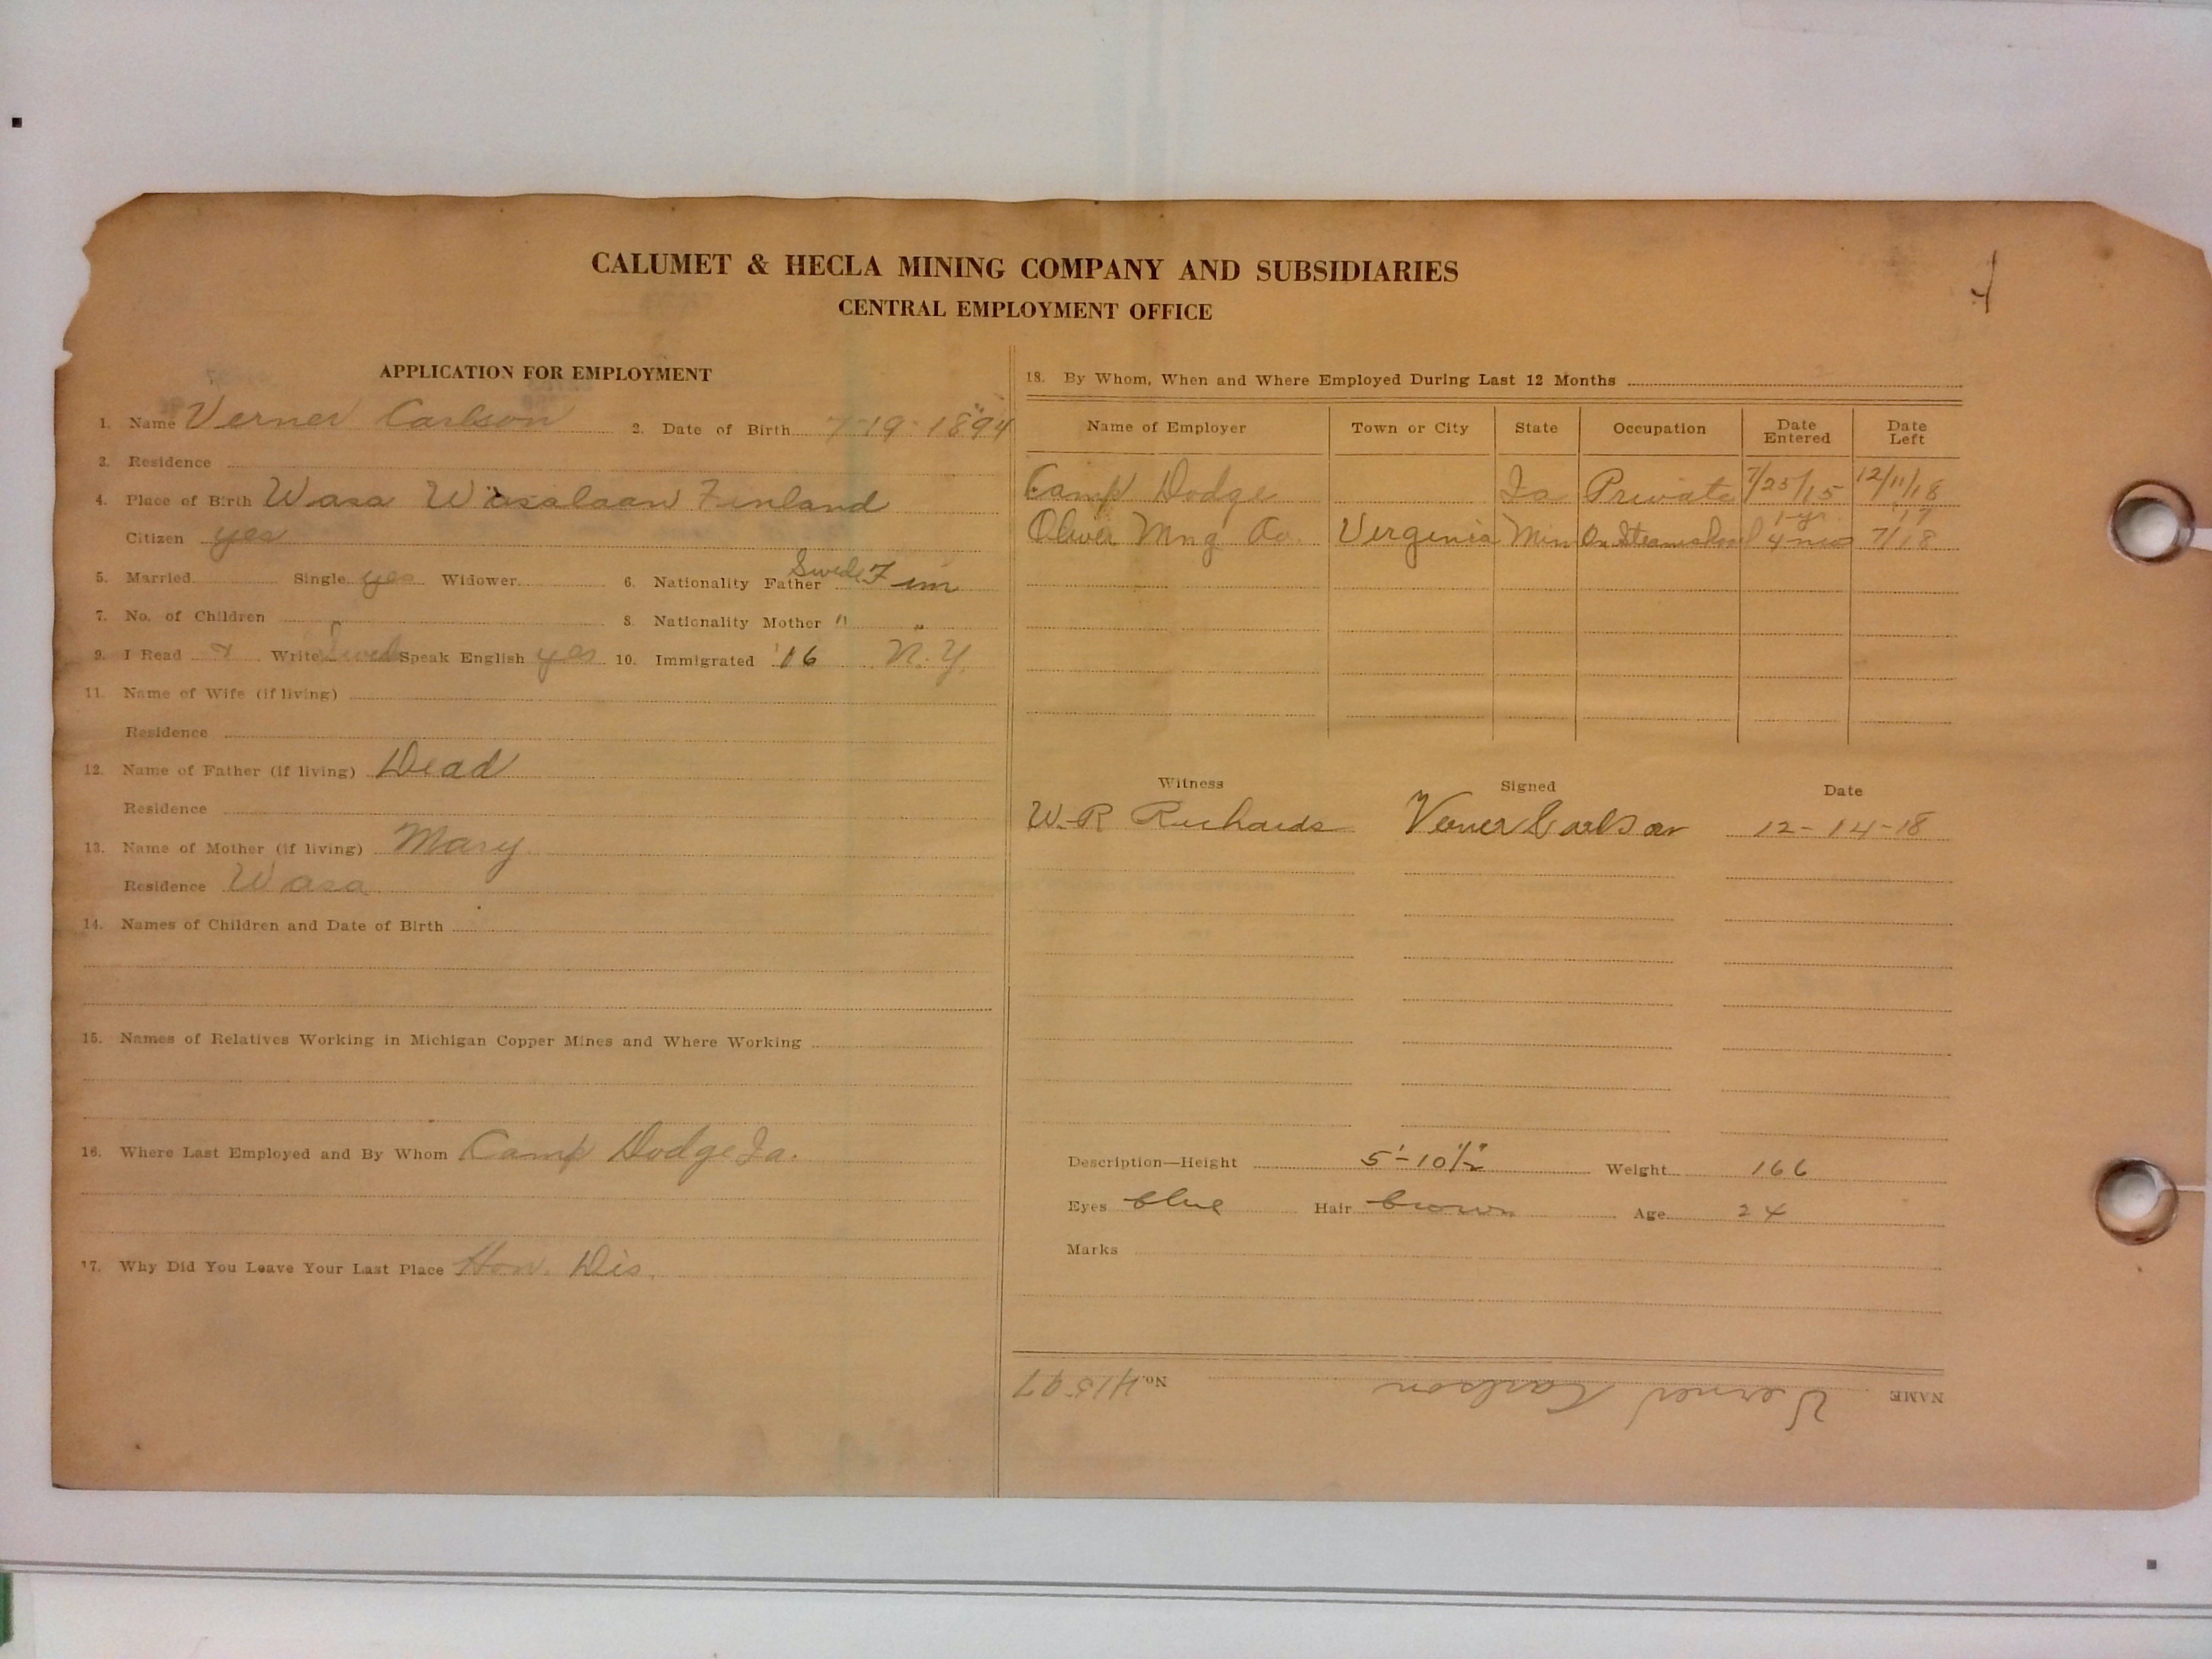 CALUMET & HECLA MINING COMPANY AND SUBSIDIARIES
CENTRAL EMPLOYMENT OFFICE
APPLICATION FOR EMPLOYMENT
1. Name Verner Carlson 2. Date of Birth 7-19-1894
3. Residence
4. Place of Birth Wasa Wasalaan Finland
Citizen yes
5. Married Single yes Widower 6. Nationality Father Swede Finn
7. No. of Children 8. Nationality Mother " "
9. I Read & Write Swede Speak English yes 10. Immigrated '16 N.Y.
11. Name of Wife (if living)
Residence
12. Name of Father (if living) Dead
Residence
13. Name of Mother (if living) Mary
Residence Wasa
14. Names of Children and Date of Birth
15. Names of Relatives Working in Michigan Copper Mines and Where Working
16. Where Last Employed and By Whom Camp Dodge Ia.
17. Why Did You Leave Your Last Place Hon. Dis.
18. By Whom, When and Where Employed During Last 12 Months
Name of Employer Town or City State Occupation Date Entered Date Left
Camp Dodge Ia Private 7/25/15 12/11/18
Oliver Mng Co. Verginia Min On Steamshovel 1 yr 4 mos 7/18
Witness Signed Date
W.R Richards Verner Carlson 12-14-18
Description—Height 5'-10½" Weight 166
Eyes blue Hair brown Age 24
Marks
NAME Verner Carlson No. 41597